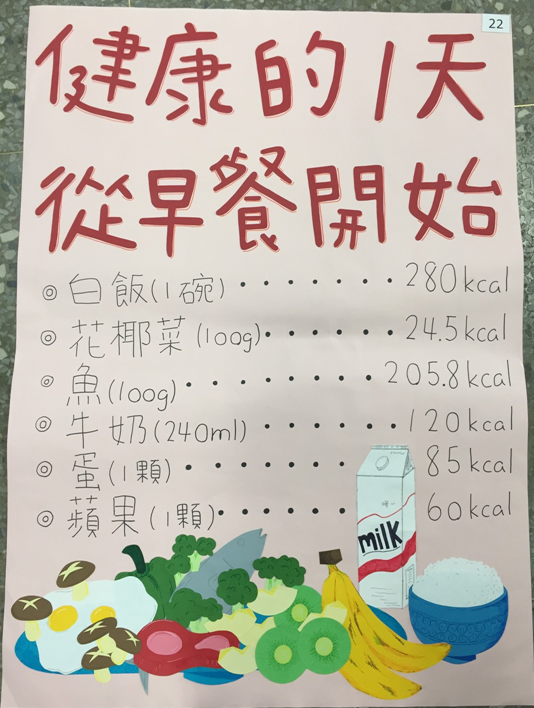 22
健康的1天
從早餐開始
◎ 白飯(1碗)·······280kcal
◎ 花椰菜(100g)·······24.5kcal
◎ 魚(100g)········205.8kcal
◎ 牛奶(240ml)······120kcal
◎ 蛋(1顆)·······85kcal
◎ 蘋果(1顆)······60kcal
milk